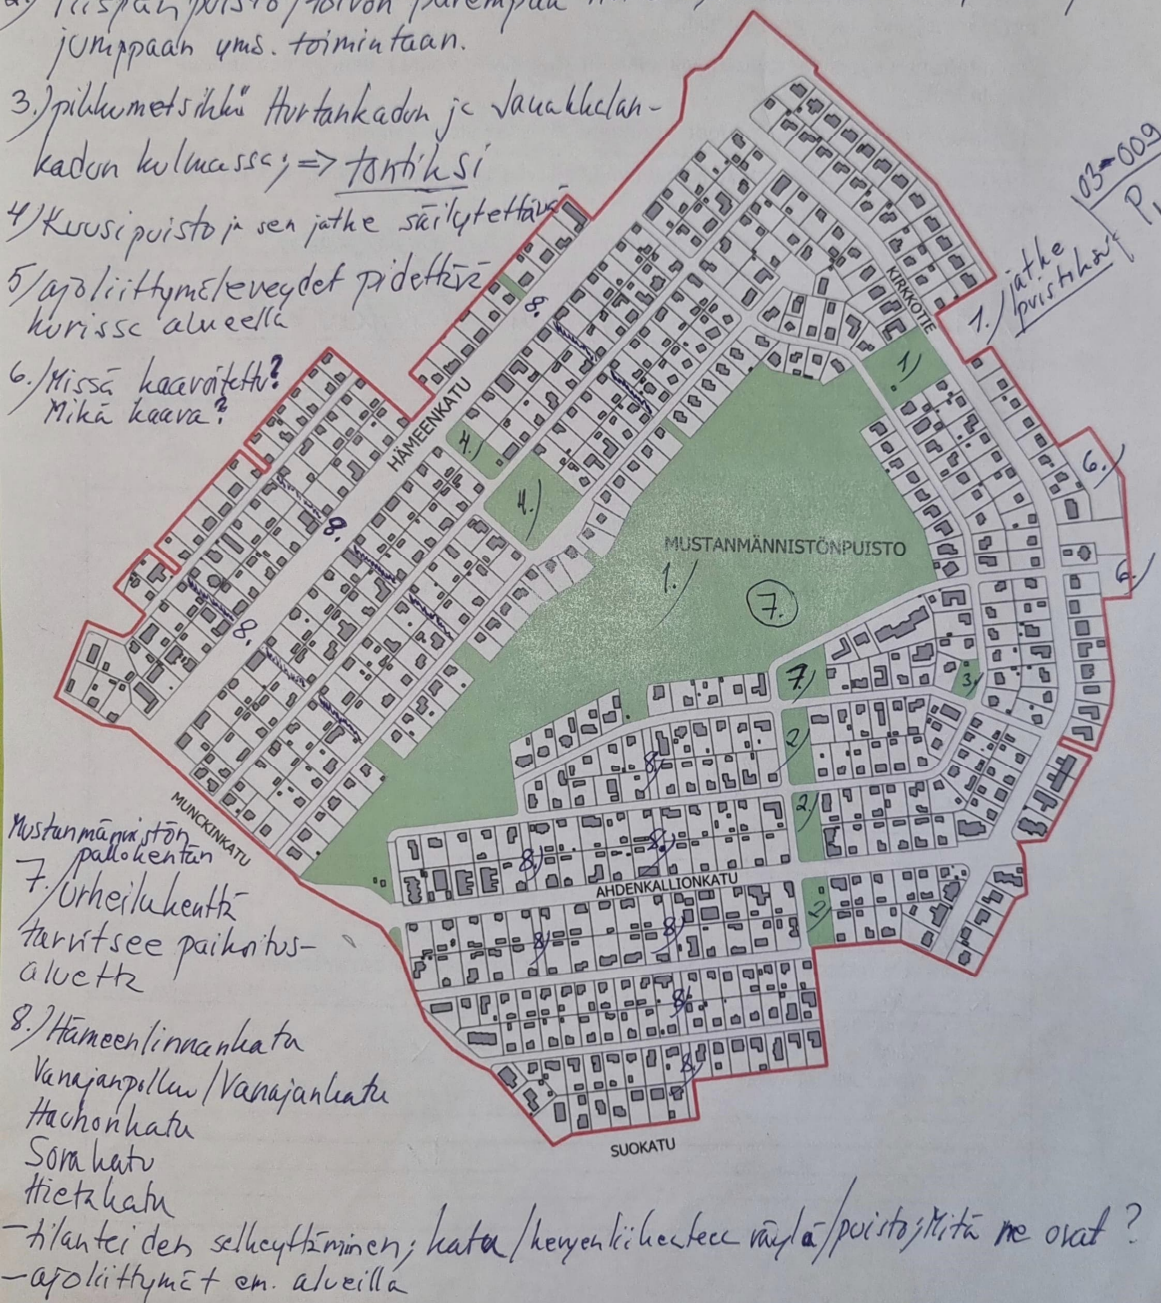 jumppaan yms. toimintaan.
3.) pikkumetsikkö Hurtankadun ja Janakkalan-
kadun kulmassa; => tontiksi
4) Kuusipuisto ja sen jatke säilytettävä
5/ ajoliittymäleveydet pidettävä
kurissa alueella
6./ Missä kaavoitettu?
Mikä kaava?
03-009
1./ jatke
KIRKKOTIE
HÄMEENKATU
8.
1)
4.)
4.)
6.)
8.
MUSTANMÄNNISTÖNPUISTO
1.
7.
6/
8.
7.)
3)
2)
8)
2)
MUNCKINKATU
8)
8)
AHDENKALLIONKATU
2)
8)
8)
8)
8)
SUOKATU
Mustanmännistön
pallokentän
7./ Urheilukenttä
tarvitsee paikoitus-
aluetta
8.) Hämeenlinnankatu
Vanajanpolku/Vanajankatu
Hauhonkatu
Sorakatu
Hietakatu
- tilanteiden selkeyttäminen; katu/kevyenliikenteen väylä/puisto; Mitä ne ovat?
- ajoliittymät em. alueilla